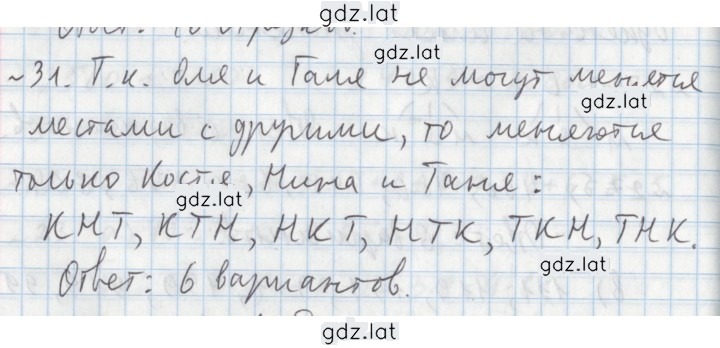 gdz.lat
gdz.lat
~31. Т.к. Оля и Галя не могут меняться
gdz.lat
местами с другими, то меняются
только Костя, Нина и Таня:
gdz.lat
КНТ, КТН, НКТ, НТК, ТКН, ТНК.
gdz.lat
Ответ: 6 вариантов.
gdz.lat